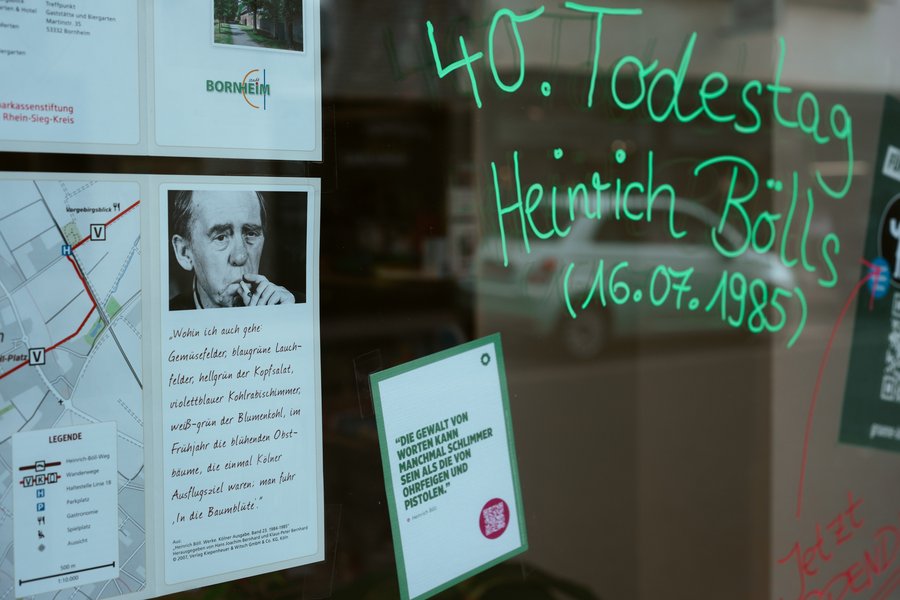 Treffpunkt
Gaststätte und Biergarten
Martinstr. 35
53332 Bornheim
& Hotel
Biergarten
Rhein-Sieg-Kreis
stadt
BORNHEIM
40. Todestag
Heinrich Bölls
(16.07.1985)
Vorgebirgsblick
V
H
V
LEGENDE
Heinrich-Böll-Weg
V K Q Wanderwege
H Haltestelle Linie 18
P Parkplatz
Gastronomie
Spielplatz
Aussicht
500 m
1:10.000
„Wohin ich auch gehe:
Gemüsefelder, blaugrüne Lauch-
felder, hellgrün der Kopfsalat,
violettblauer Kohlrabischimmer,
weiß-grün der Blumenkohl, im
Frühjahr die blühenden Obst-
bäume, die einmal Kölner
Ausflugsziel waren; man fuhr
‚In die Baumblüte‘.“
Aus:
„Heinrich Böll. Werke. Kölner Ausgabe. Band 23. 1984-1985“
Herausgegeben von Hans Joachim Bernhard und Klaus-Peter Bernhard
© 2007, Verlag Kiepenheuer & Witsch GmbH & Co. KG, Köln.
“DIE GEWALT VON
WORTEN KANN
MANCHMAL SCHLIMMER
SEIN ALS DIE VON
OHRFEIGEN UND
PISTOLEN.”
Heinrich Böll
Jetzt